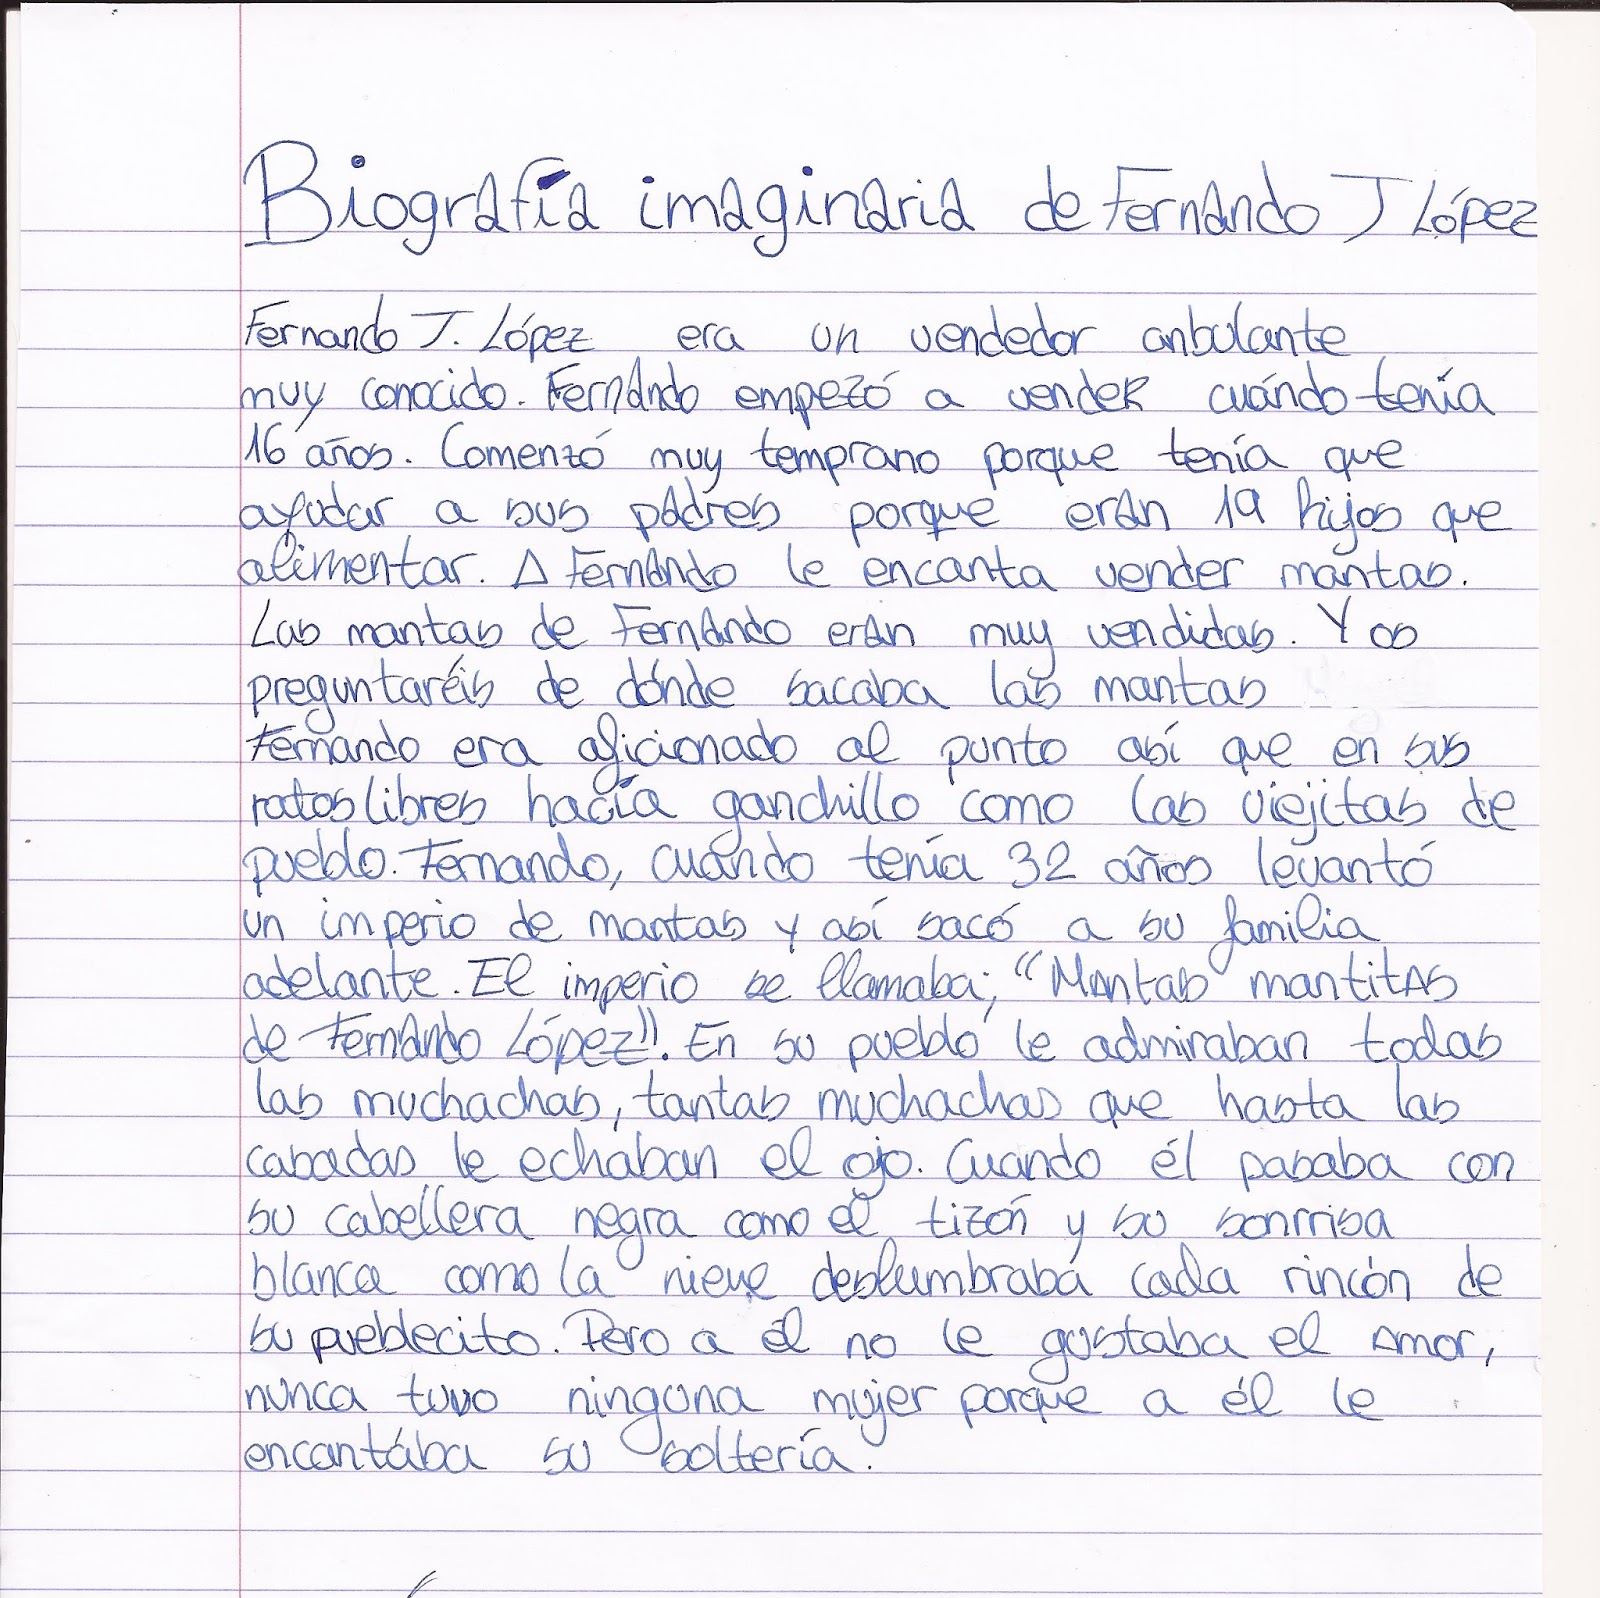 Biografía imaginaria de Fernando J López
Fernando J. López era un vendedor anbulante
muy conocido. Fernando empezó a vender cuándo tenía
16 años. Comenzó muy temprano porque tenía que
ayudar a sus padres porque eran 19 hijos que
alimentar. A Fernando le encanta vender mantas.
Las mantas de Fernando eran muy vendidas. Y os
preguntaréis de dónde sacaba las mantas
Fernando era aficionado al punto así que en sus
ratos libres hacía ganchillo como las viejitas de
pueblo. Fernando, cuándo tenía 32 años levantó
un imperio de mantas y así sacó a su familia
adelante. El imperio se llamaba; "Mantas mantitas
de Fernando López". En su pueblo le admiraban todas
las muchachas, tantas muchachas que hasta las
casadas le echaban el ojo. Cuando él pasaba con
su cabellera negra como el tizón y su sonrrisa
blanca como la nieve deslumbraba cada rincón de
su pueblecito. Pero a él no le gustaba el amor,
nunca tuvo ninguna mujer porque a él le
encantába su soltería.